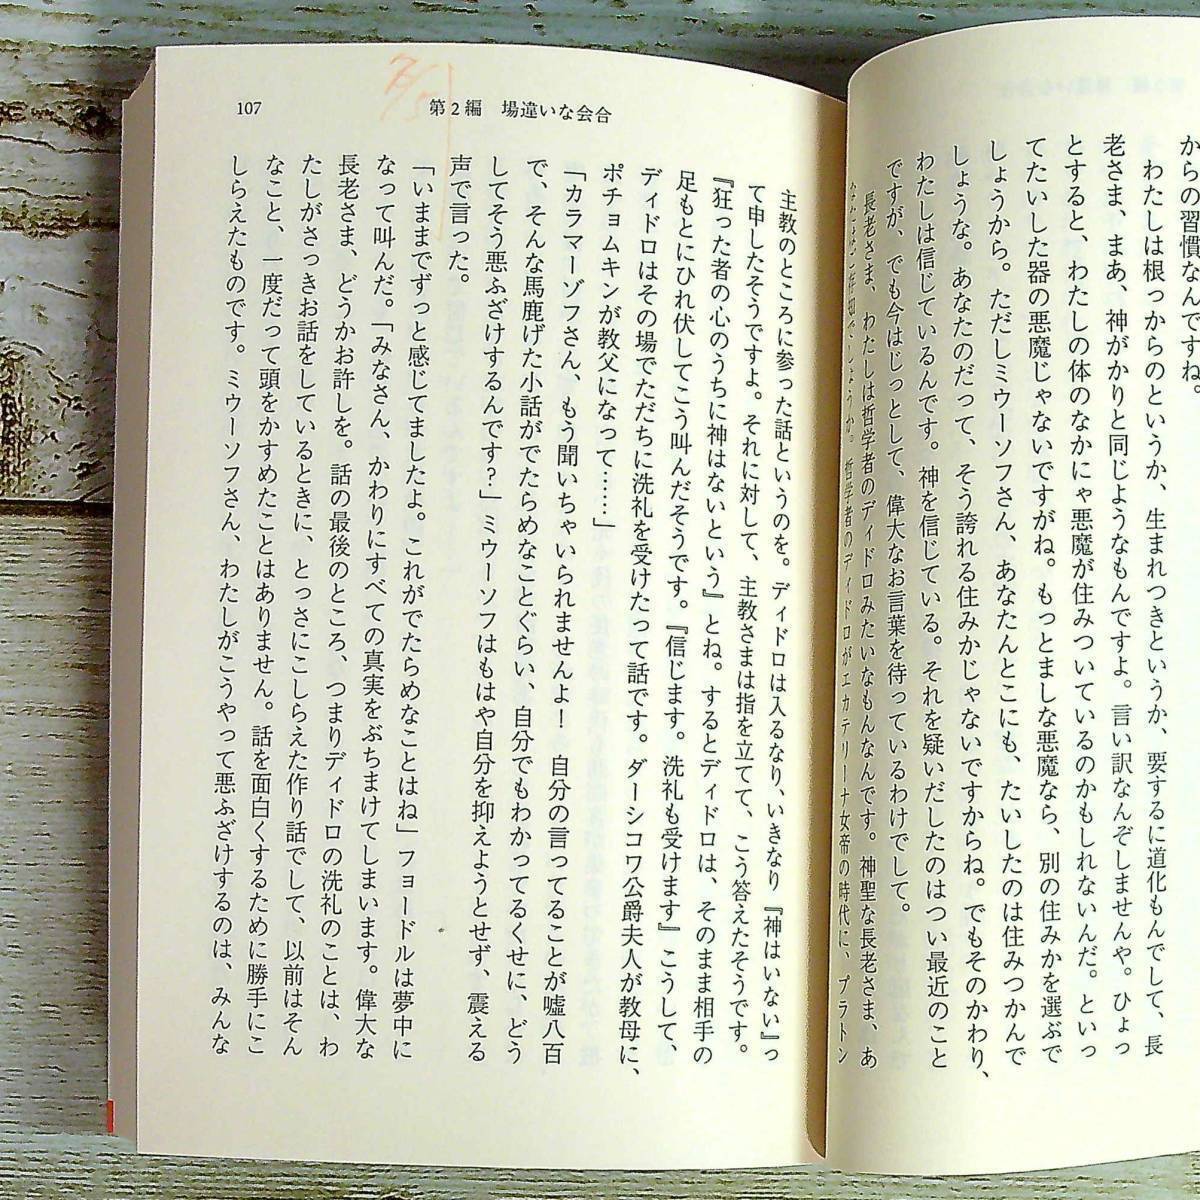 からの習慣なんですね。
わたしは根っからのというか、生まれつきというか、要するに道化もんでして、長
老さま、まあ、神がかりと同じようなもんですよ。言い訳なんぞしませんや。ひょっ
とすると、わたしの体のなかにゃ悪魔が住みついているのかもしれないんだ。といっ
てたいした器の悪魔じゃないですがね。もっとましな悪魔なら、別の住みかを選ぶで
しょうから。ただしミウーソフさん、あなたんとこにも、たいしたのは住みつかんで
しょうな。あなたのだって、そう誇れる住みかじゃないですからね。でもそのかわり、
わたしは信じているんです。神を信じている。それを疑いだしたのはつい最近のこと
ですが、でも今はじっとして、偉大なお言葉を待っているわけでして。
長老さま、わたしは哲学者のディドロみたいなもんなんです。神聖な長老さま、あ
哲学者のディドロがエカテリーナ女帝の時代に、プラトン
107
第2編 場違いな会合
主教のところに参った話というのを。ディドロは入るなり、いきなり『神はいない』っ
て申したそうですよ。それに対して、主教さまは指を立てて、こう答えたそうです。
『狂った者の心のうちに神はないという』とね。するとディドロは、そのまま相手の
足もとにひれ伏してこう叫んだそうです。『信じます。洗礼も受けます』こうして、
ディドロはその場でただちに洗礼を受けたって話です。ダーシコワ公爵夫人が教母に、
ポチョムキンが教父になって……」
「カラマーゾフさん、もう聞いちゃいられませんよ！ 自分の言ってることが嘘八百
で、そんな馬鹿げた小話がでたらめなことぐらい、自分でもわかってるくせに、どう
してそう悪ふざけするんです？」ミウーソフはもはや自分を抑えようとせず、震える
声で言った。
「いままでずっと感じてましたよ。これがでたらめなことはね」フョードルは夢中に
なって叫んだ。「みなさん、かわりにすべての真実をぶちまけてしまいます。偉大な
長老さま、どうかお許しを。話の最後のところ、つまりディドロの洗礼のことは、わ
たしがさっきお話をしているときに、とっさにこしらえた作り話でして、以前はそん
なこと、一度だって頭をかすめたことはありません。話を面白くするために勝手にこ
しらえたものです。ミウーソフさん、わたしがこうやって悪ふざけするのは、みんな